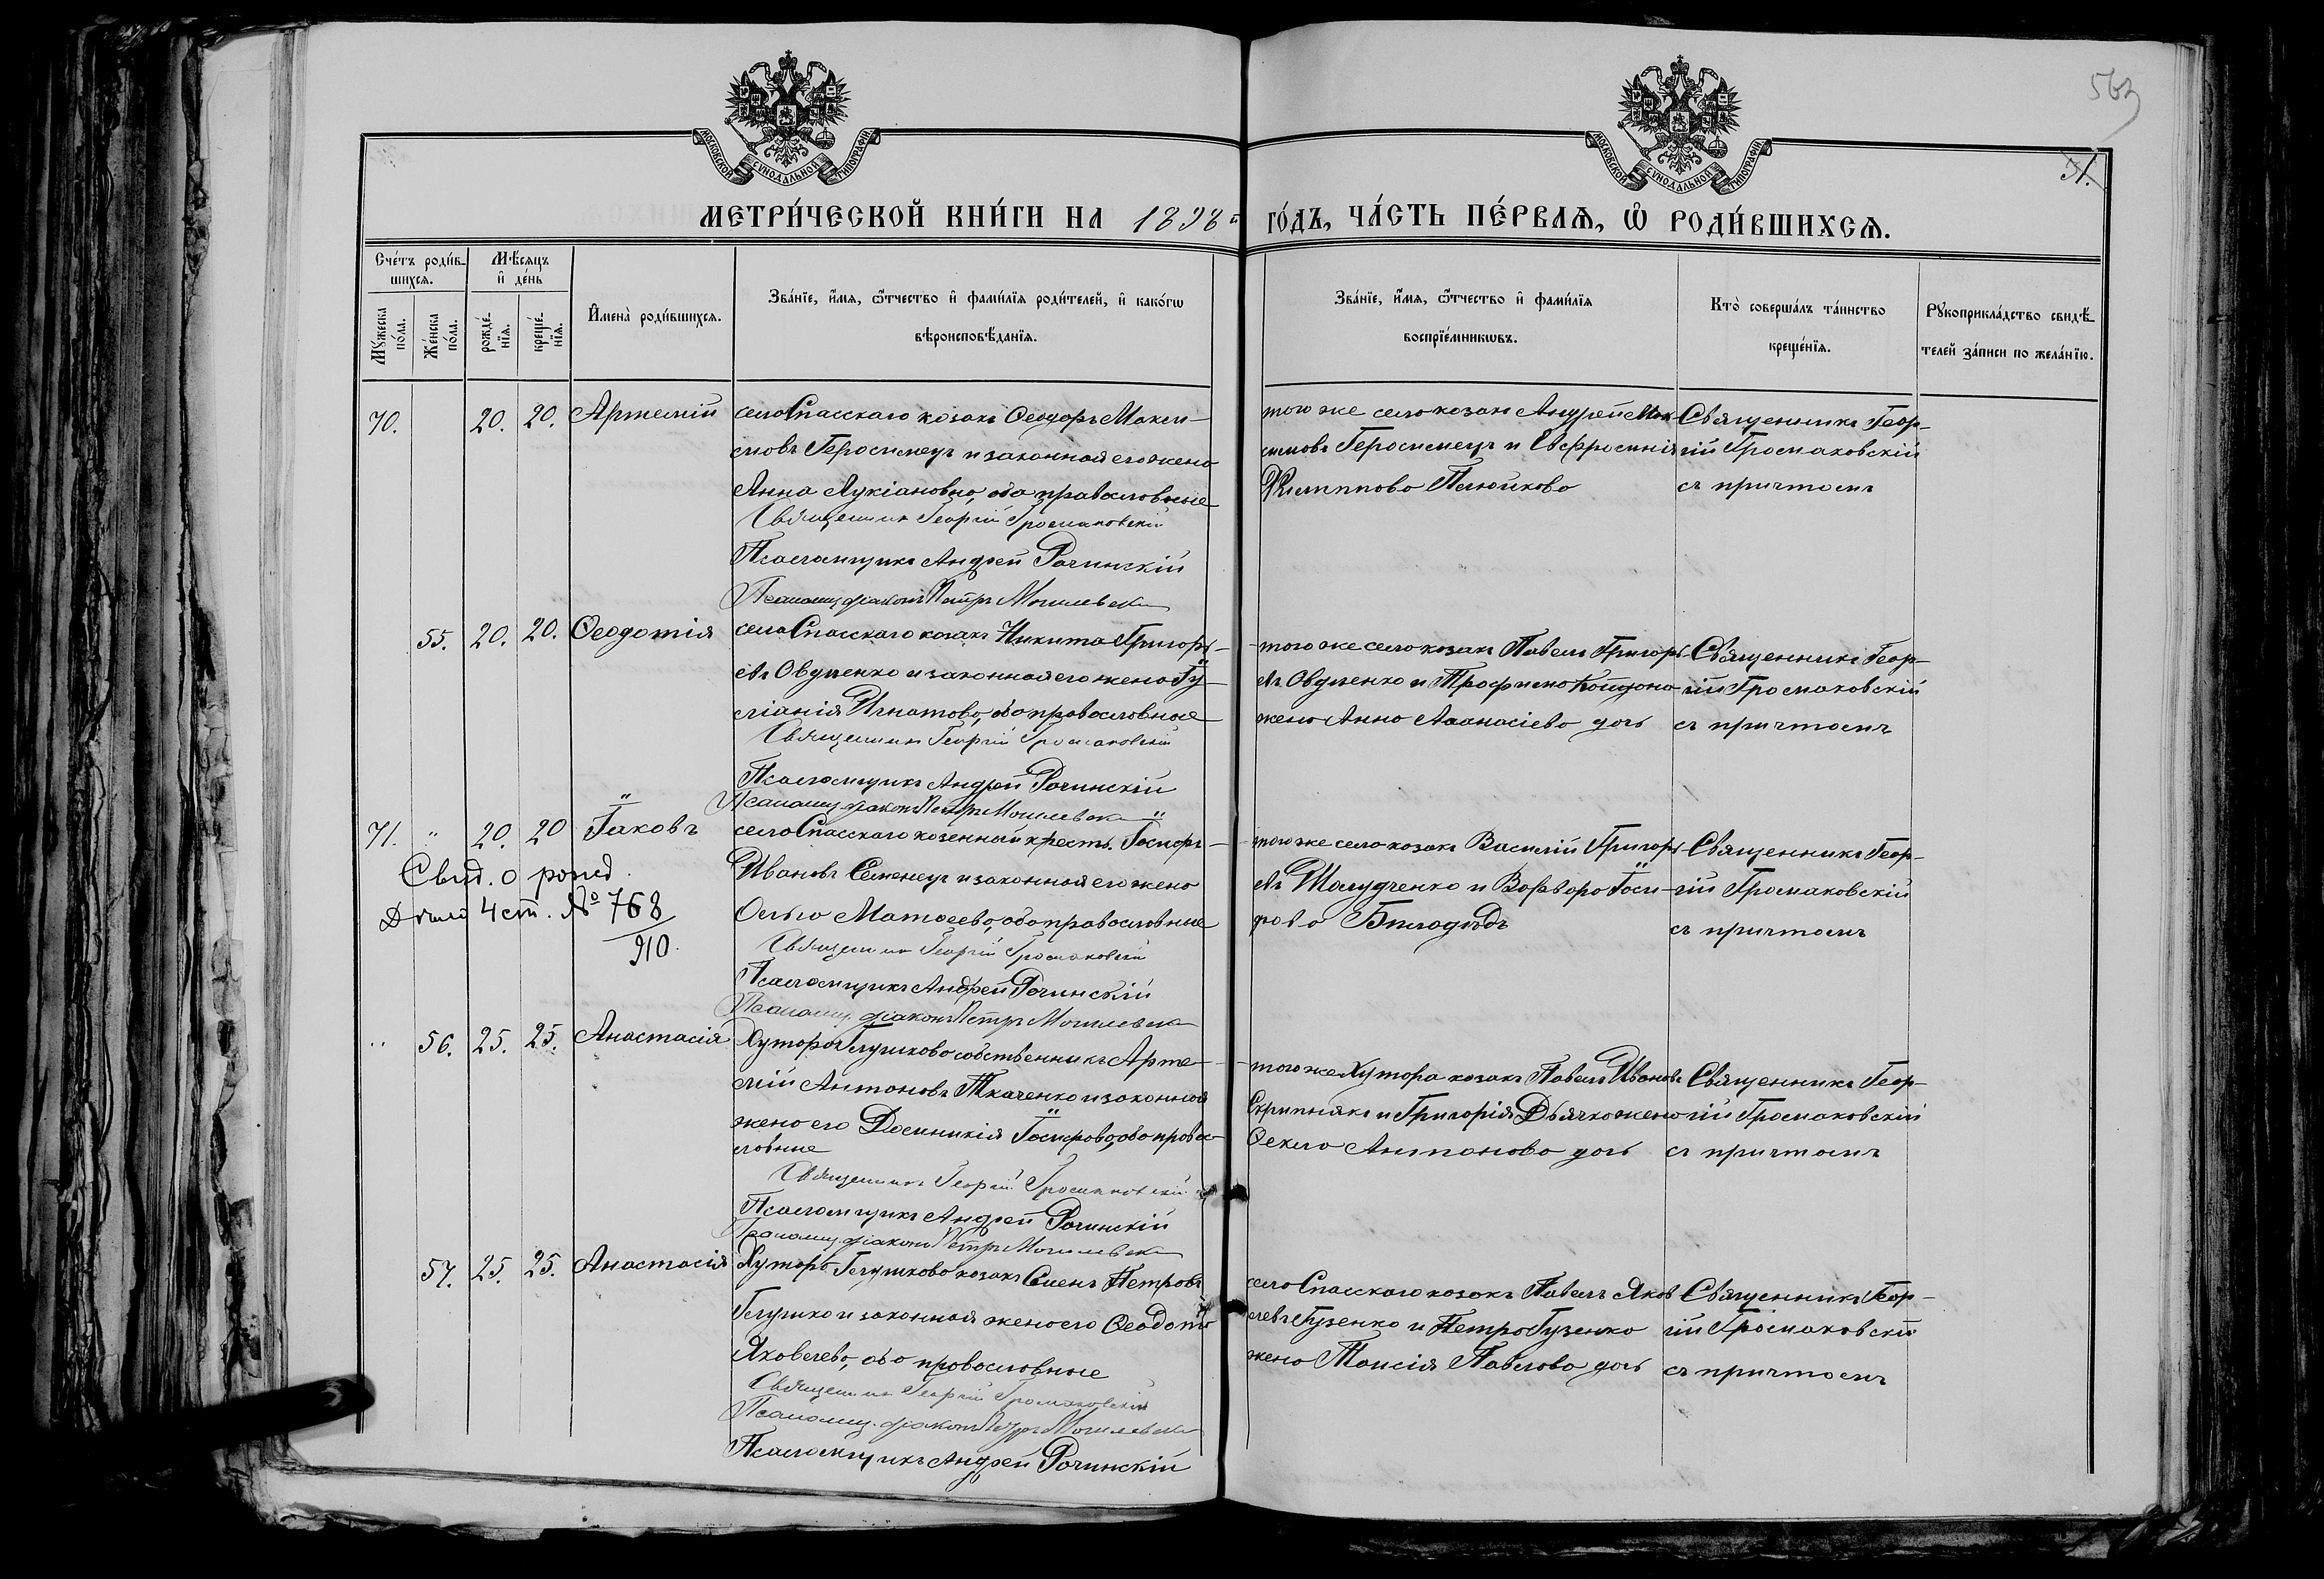 563
31.
МОСКОВСКОЙ СѴНОДАЛЬНОЙ ТИПОГРАФІИ
МОСКОВСКОЙ СѴНОДАЛЬНОЙ ТИПОГРАФІИ
МЕТРИ́ЧЕСКОЙ КНИ́ГИ НА 1898 й ГО́ДЪ, ЧА́СТЬ ПЕ́РВАѦ, Ѡ РОДИ́ВШИХСѦ.
Сче́тъ роди́в-
шихсѧ.
Мѣсѧцъ
и҆ де́нь
Мꙋ́жеска по́ла.
Же́нска по́ла.
рожде́-нїѧ.
креще́-нїѧ.
И҆мена̀ роди́вшихсѧ.
Зва́нїе, и҆́мѧ, ѻ҆́тчество и҆ фами́лїѧ роди́телей, и҆ како́гѡ
вѣроисповѣ́данїѧ.
Зва́нїе, и҆́мѧ, ѻ҆́тчество и҆ фами́лїѧ
воспрїе́мникѡвъ.
Кто̀ соверша́лъ та́инство
креще́нїѧ.
Рꙋкоприкла́дство свидѣ́-
телей за́писи по жела́нїю.
70. 20. 20. Артемій
села Спасскаго козакъ Ѳеодоръ Макси-
мовъ Герасимецъ и законная его жена
Анна Лукіановна, оба православные
Священникъ Георгій Громаковскій
Псаломщикъ Андрей Рачинскій
Псаломщ. діаконъ Петръ Могилевск
того же села козакъ Андрей Мак-
симовъ Герасимецъ и Евфросинія
Филиппова
Священникъ Геор-
гій Громаковскій
съ причтомъ
55. 20. 20. Ѳеодотія
села Спасскаго козакъ Никита Григорь-
евъ Овдіенко и законная его жена Іу-
ліанія Игнатова, оба православные
Священникъ Георгій Громаковскій
Псаломщикъ Андрей Рачинскій
Псаломщ. діаконъ Петръ Могилевск
того же села козакъ Павелъ Григорь-
евъ Овдіенко и Трофима
жена Анна Аѳанасіева дочь
Священникъ Геор-
гій Громаковскій
съ причтомъ
71. " 20. 20 Іаковъ
Свид. о рожд.
4 ст. № 768
910.
села Спасскаго казенный крест. Іосифъ
Ивановъ Семенецъ и законная его жена
Ольга Матѳеева, оба православные
Священникъ Георгій Громаковскій
Псаломщикъ Андрей Рачинскій
Псаломщ. діаконъ Петръ Могилевск
того же села козакъ Василій Григорь-
евъ Шалудченко и Варвара Іоси-
фова Билодѣдъ
Священникъ Геор-
гій Громаковскій
съ причтомъ
" 56. 25. 25. Анастасія
Хутора Глушкова собственникъ Арте-
мій Антоновъ Ткаченко и законная
жена его Домникія Іосифова, оба право-
славные
Священникъ Георгій Громаковскій
Псаломщикъ Андрей Рачинскій
Псаломщ. діаконъ Петръ Могилевск
того же Хутора козакъ Павелъ Ивановъ
Скрипникъ и Григорія Дьячко жена
Ѳекла Антонова дочь
Священникъ Геор-
гій Громаковскій
съ причтомъ
57. 25. 25. Анастасія
Хутора Глушкова козакъ Семенъ Петровъ
Глушко и законная жена его Ѳеодотія
Яковлева, оба православные
Священникъ Георгій Громаковскій
Псаломщ. діаконъ Петръ Могилевск
Псаломщикъ Андрей Рачинскій
села Спасскаго козакъ Павелъ Яков-
левъ Гузенко и Петра Гузенко
жена Таисія Павлова дочь
Священникъ Геор-
гій Громаковскій
съ причтомъ